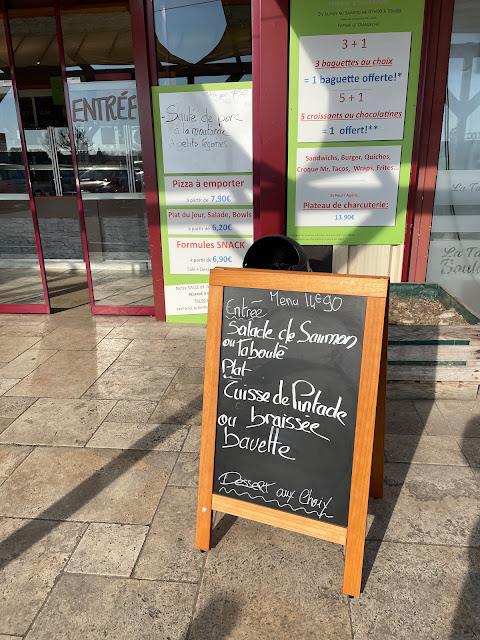 ENTRÉE
Sauté de porc
à la moutarde
petits légumes
Pizza à emporter
à partir de 7,90€
Plat du jour, Salade, Bowls
à partir de 6,20€
Formules SNACK
à partir de 6,90€
3 + 1
3 baguettes au choix
= 1 baguette offerte!*
5 + 1
5 croissants ou chocolatines
= 1 offert!**
Sandwichs, Burger, Quiches,
Croque Mr, Tacos, Wraps, Frites..
Plateau de charcuterie:
13.90€
La Ta
Boula
Menu 14€90
Entrée
Salade de Saumon
ou Taboulé
Plat
Cuisse de Pintade
ou braissée
bavette
Dessert aux Choix